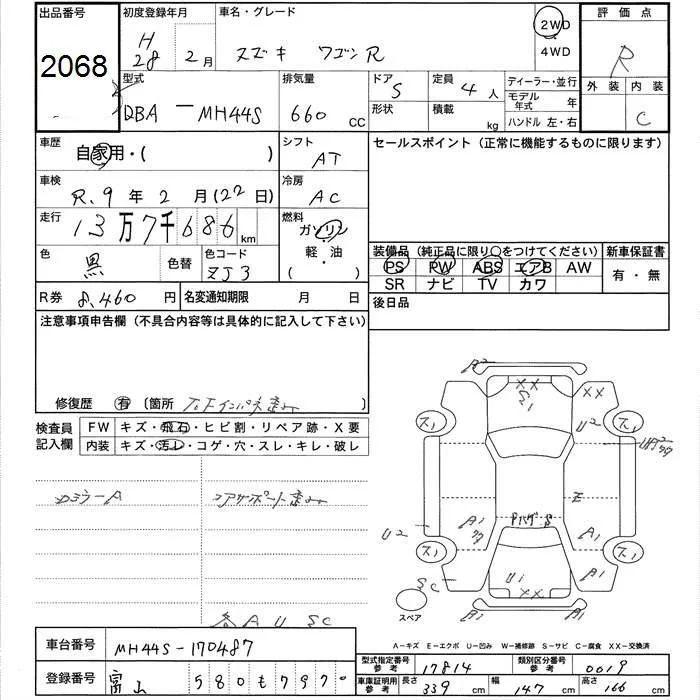 出品番号 初度登録年月 車名・グレード 2WD 評価点
2068 H28 2月 スズキ ワゴンR 4WD R
型式 排気量 ドア 定員 ディーラー・並行 外装 内装
DBA-MH44S 660 CC 5 4人 モデル年式 年 C
形状 積載 kg ハンドル 左・右
車歴 自家用・( ) シフト AT セールスポイント (正常に機能するものに限ります)
車検 R.9年2月(22日) 冷房 AC
走行 13万7千686km 燃料 ガソリン
軽・油
( )
色 黒 色替 色コード ZJ3
装備品 (純正品に限り〇をつけてください) 新車保証書
PS PW ABS エアB AW 有・無
SR ナビ TV カワ
R券 8,460円 名変通知期限 月 日 後日品
注意事項申告欄 (不具合内容等は具体的に記入して下さい)
修復歴 有 〔箇所 〕
検査員記入欄 FW キズ・飛石・ヒビ割・リペア跡・X要
内装 キズ・汚レ・コゲ・穴・スレ・キレ・破レ
コアサポート歪み
A2
XX XX
S1
スリ スリ
U2
E
A1 A1
U2
スリ スリ
U1 A1
XX
SC
A1
スペア
各 A U SC
A-キズ E-エクボ U-凹み W-補修跡 S-サビ C-腐食 XX-交換済
車台番号 MH44S-170487
登録番号 富山 580 も 797
型式指定番号 参考 17814 類別区分番号 参考 0019
車庫証明用 参考 長さ 339 cm 幅 147 cm 高さ 166 cm